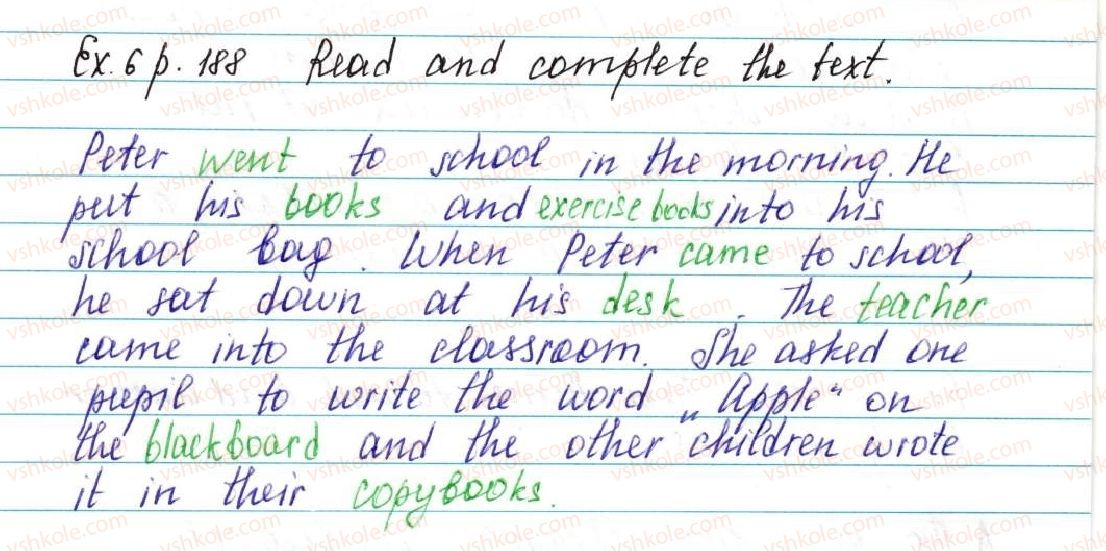 Ex. 6 p. 188 Read and complete the text.
Peter went to school in the morning. He
put his books and exercise books into his
school bag. When Peter came to school,
he sat down at his desk. The teacher
came into the classroom. She asked one
pupil to write the word „Apple“ on
the blackboard and the other children wrote
it in their copybooks.